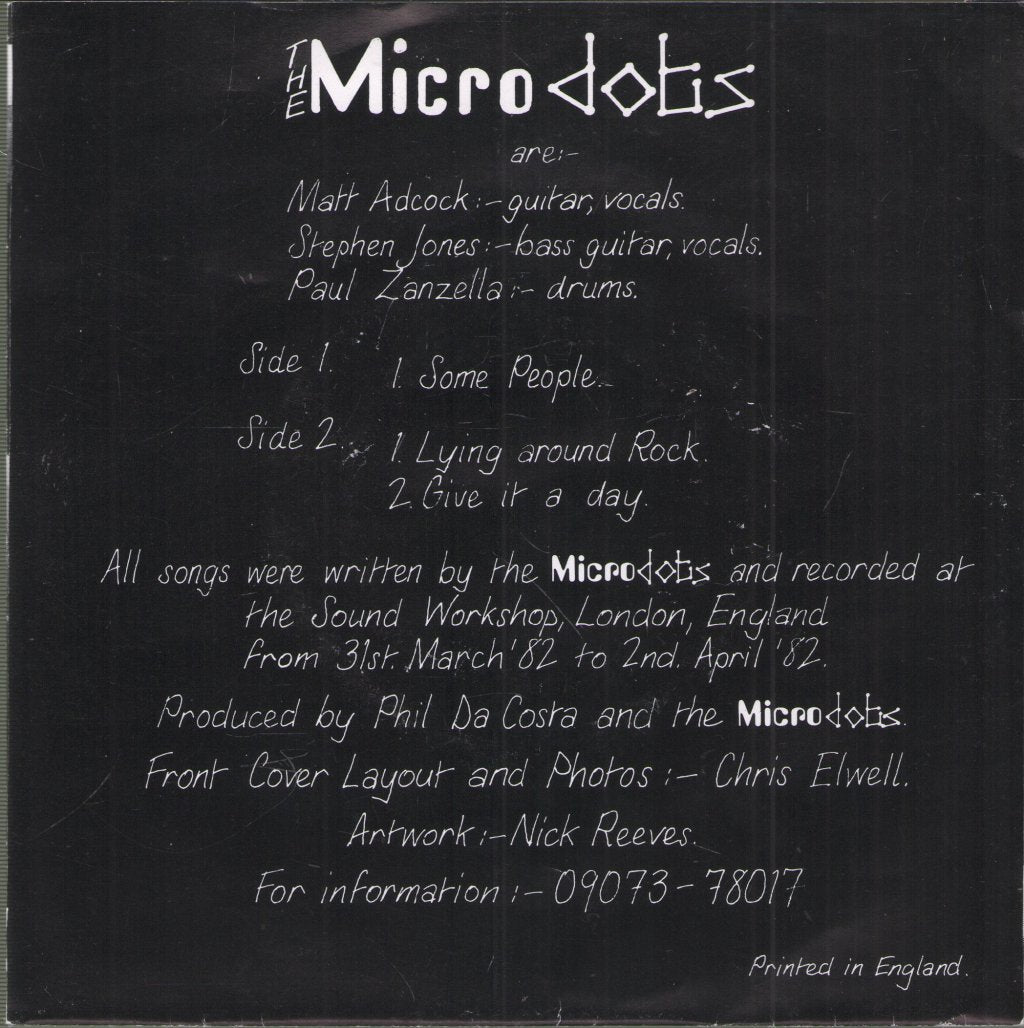 THE Microdots
are:-
Matt Adcock:- guitar, vocals.
Stephen Jones:- bass guitar, vocals.
Paul Zanzella:- drums.
Side 1. 1. Some People.
Side 2. 1. Lying around Rock.
2. Give it a day.
All songs were written by the Microdots and recorded at
the Sound Workshop, London, England
from 31st March '82 to 2nd. April '82.
Produced by Phil Da Costa and the Microdots.
Front Cover Layout and Photos:- Chris Elwell.
Artwork:- Nick Reeves.
For information:- 09073-78017
Printed in England.